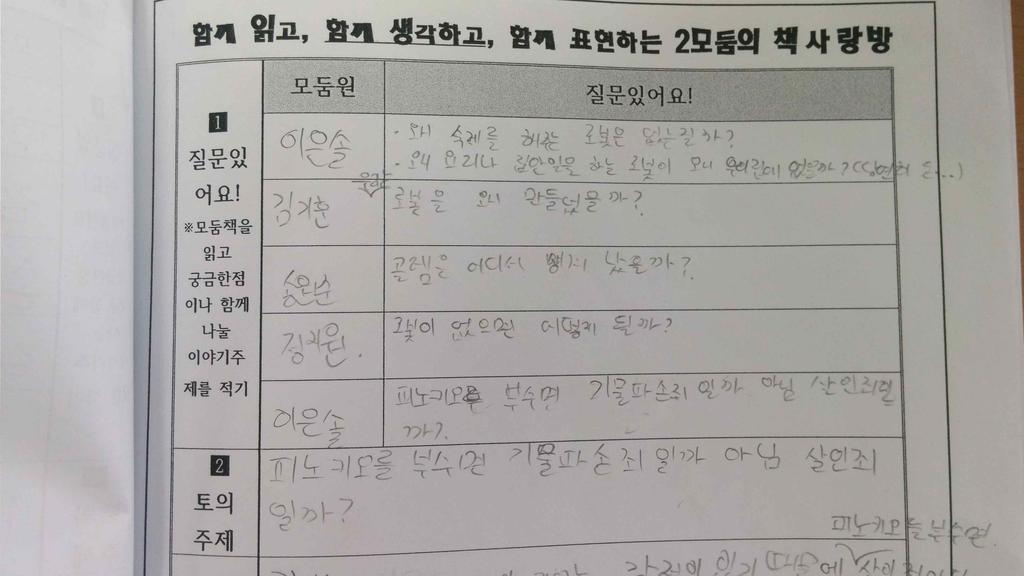 함께 읽고, 함께 생각하고, 함께 표현하는 2모둠의 책사랑방
모둠원
질문있어요!
1
질문있
어요!
※모둠책을
읽고
궁금한점
이나 함께
나눌
이야기주
제를 적기
이은솔
· 왜 숙제를 해주는 로봇은 없는걸까?
· 왜 요리나 집안일을 하는 로봇이 왜 우리집에 없을까?
김기훈
로봇을 왜 만들었을까?
골렘은 어디서 생겨 났을까?
정지원.
로봇이 없으면 어떻게 될까?
이은솔
피노키오를 부수면 기물파손죄 일까 아님 살인죄일
까?
2
토의
주제
피노키오를 부수면 기물파손죄 일까 아님 살인죄
일까?
피노키오를 부수면